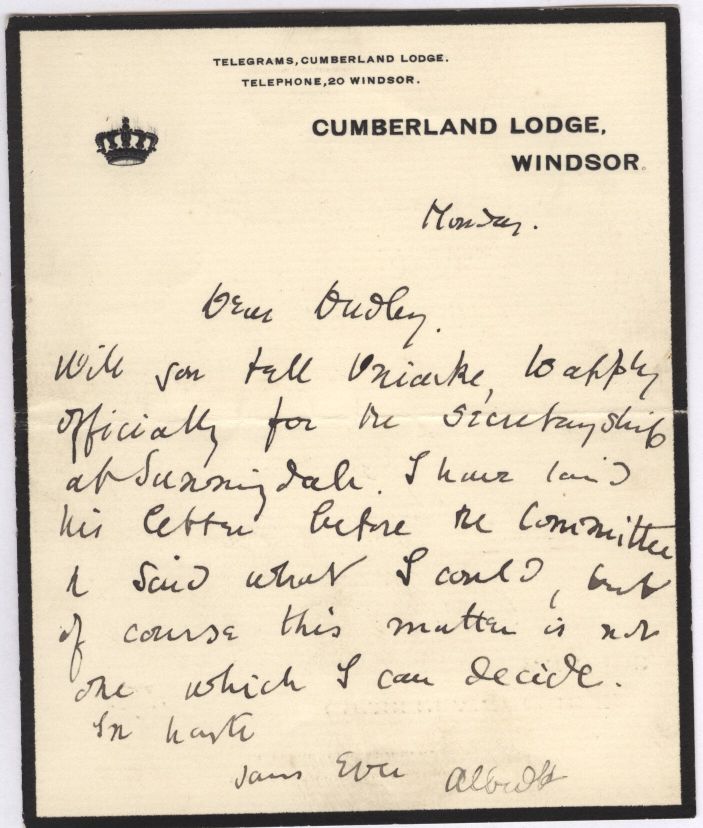 TELEGRAMS, CUMBERLAND LODGE.
TELEPHONE, 20 WINDSOR.
CUMBERLAND LODGE,
WINDSOR.
Monday.
Dear Dudley.
Will you tell Uniacke, to apply
officially for the Secretaryship
at Sunningdale. I have laid
his letter before the Committee
& said what I could, but
of course this matter is not
one which I can decide.
In haste
Yours Ever Albert